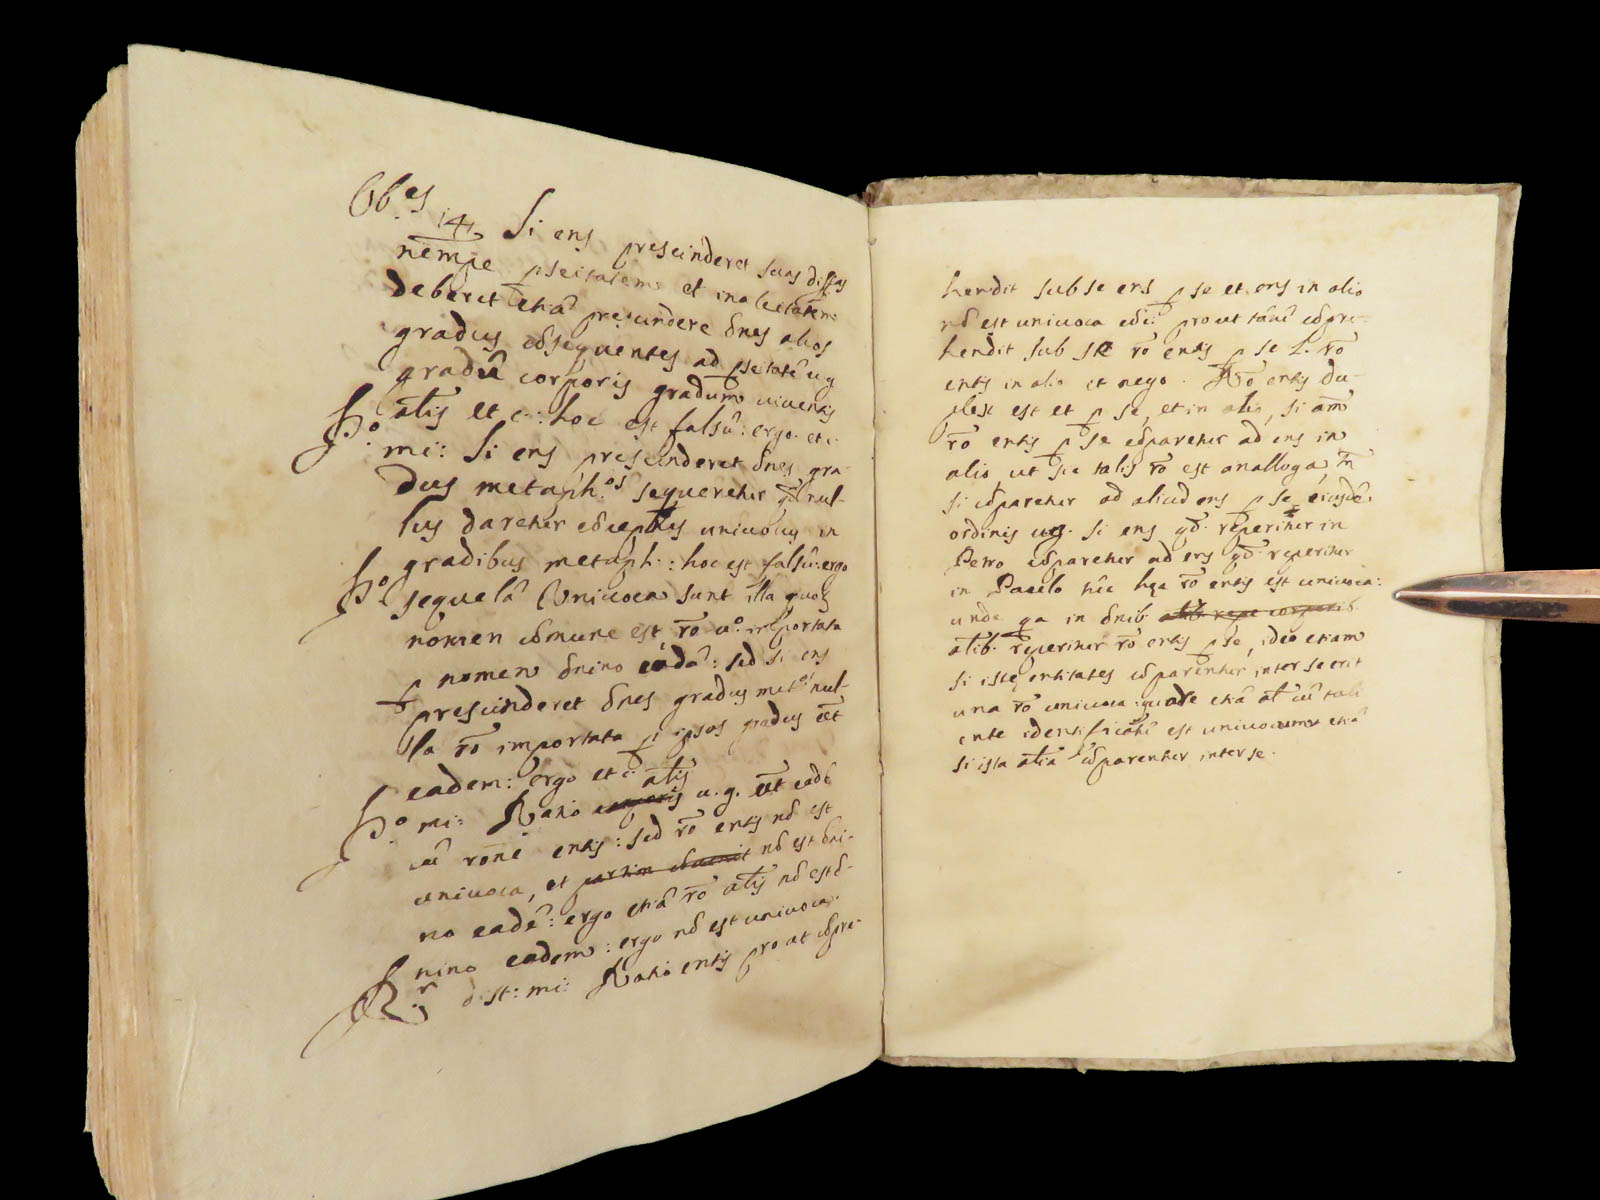 Ob.es 14. Si ens prescinderet suas diffas
nempe pseitatem et inaleitatem
deberet etiā prescindere ōnes alios
gradus cōsequentes ad pseitatē u.g
gradū corporis gradum viventis
ātis et c: hoc est falsū: ergo et c:
P.o mi: Si ens prescinderet ōnes gra-
dus metaph.os sequeretur qđ nul-
lus daretur cōceptus univocus in
gradibus metaph.: hoc est falsū: ergo
P.o sequelā Univoca sunt illa quorū
nomen cōmune est rō v.o importata
p nomen ōnino eadē: sed si ens
prescinderet ōnes gradus met.os nul-
la rō importata p ipsos gradus ēēt
eadem: ergo et c:
P.o mi: Ratio ātis u.g. ēēt eadē
cū rōne entis: sed rō entis nō est
univoca, et nō est ōni-
no eadē: ergo etiā rō ātis nō est ō-
nino eadem: ergo nō est univoca.
R.r dist: mi: Ratio entis prout cōpre-
hendit sub se ens p se et ens in alio
nō est univoca cōc: prout tātū cōpre-
hendit sub se rō entis p se l. rō
entis in alio et nego. Rō entis du-
plex est et p se, et in alio, si ām
rō entis p se cōparetur ad ens in
alio, ut sic talis rō est analloga, tn̄
si cōparetur ad aliud ens p se eiusdē
ordinis ug. si ens qđ reperitur in
Petro cōparetur ad ens qđ reperitur
in Paulo tūc hęc rō entis est univoca:
unde qa in ōnib.
ātib. reperitur rō entis p se, ideo etiam
si istę entitates cōparentur inter se erit
una rō univoca: quare etiā āt cū tali
ente identificatū est univocum etiā
si ista ātia cōparentur inter se.